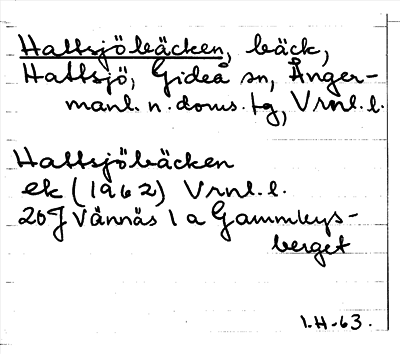 Hattsjöbäcken, bäck,
Hattsjö, Gideå sn, Ånger-
manl. n. doms. tg, Vrnl. l.
Hattsjöbäcken
ek (1962) Vrnl. l.
20J Vännäs 1 a Gammlys-
berget
I.H-63.